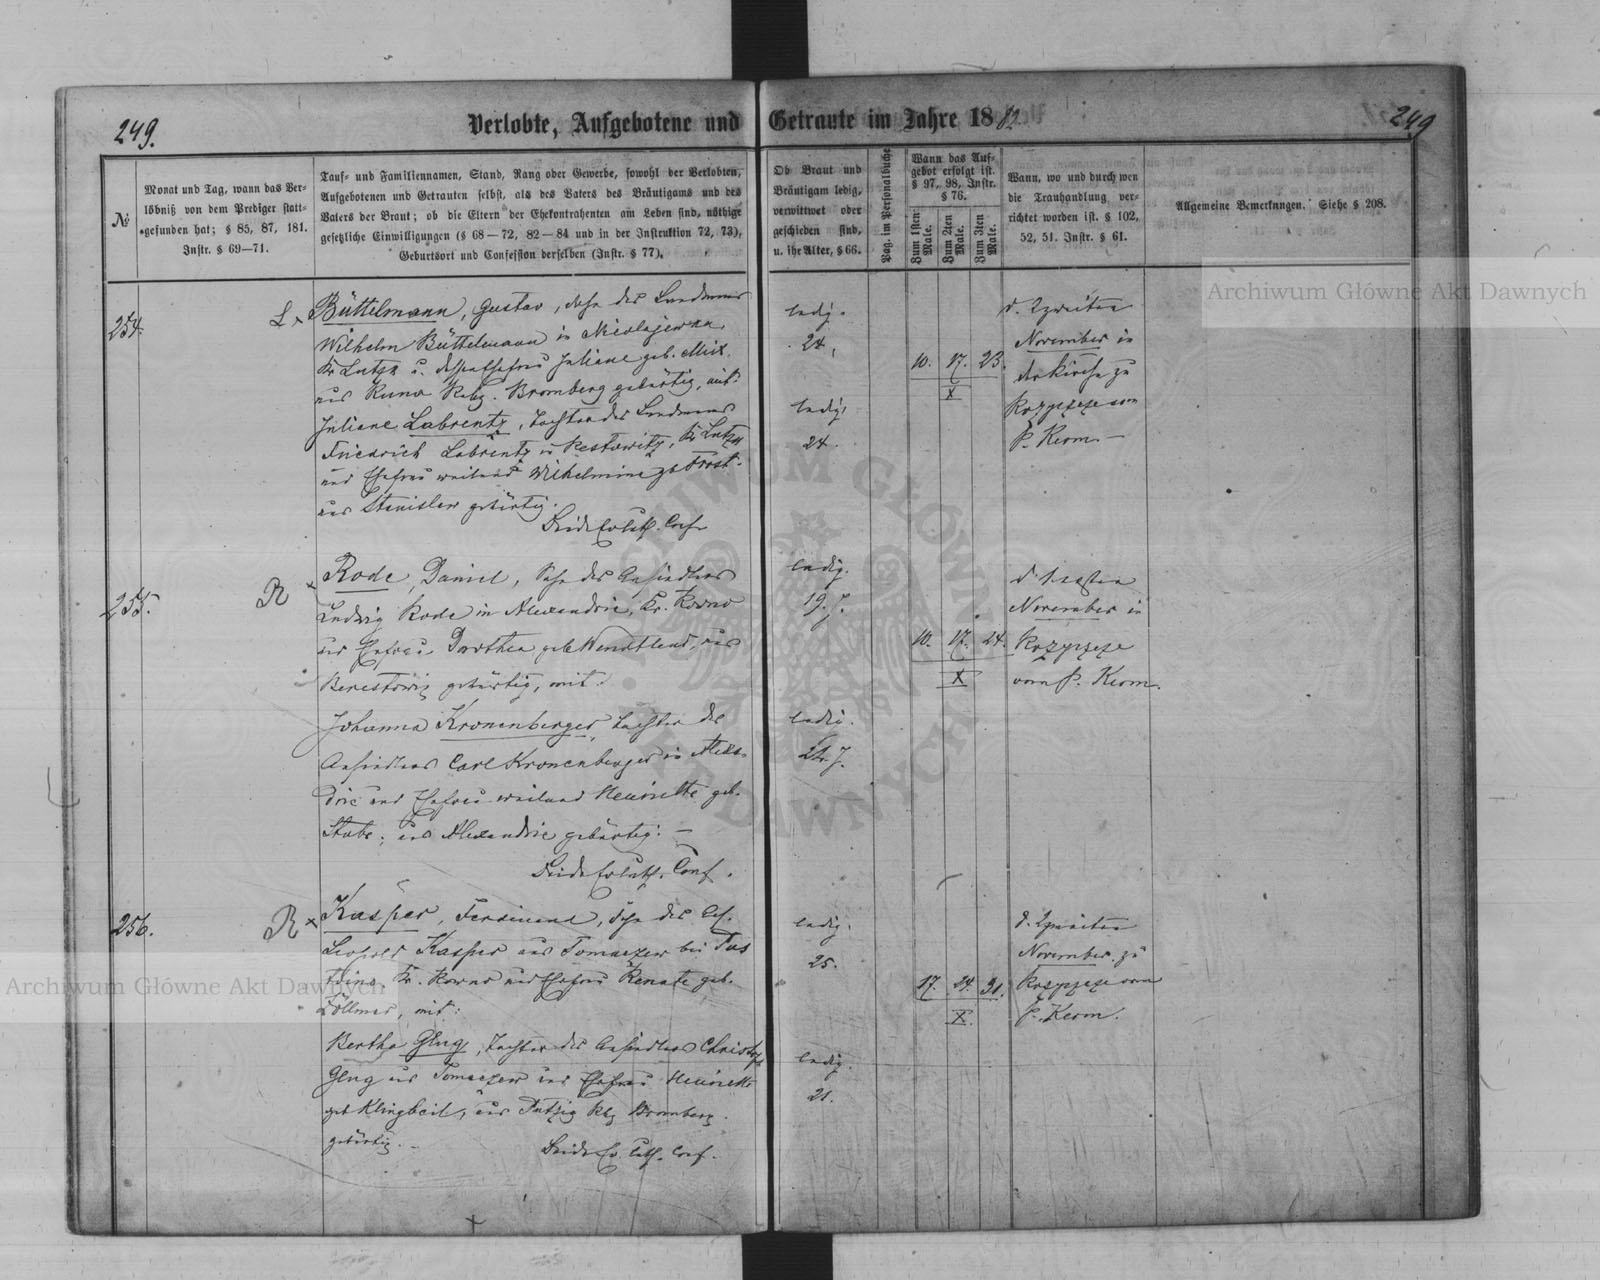 249.
Verlobte, Aufgebotene und Getraute im Jahre 1882.
249
№
Monat und Tag, wann das Ver-
löbniß von dem Prediger statt-
gefunden hat; § 85, 87, 181.
Instr. § 69—71.
Tauf- und Familiennamen, Stand, Rang oder Gewerbe, sowohl der Verlobten,
Aufgebotenen und Getrauten selbst, als des Vaters des Bräutigams und des
Vaters der Braut; ob die Eltern der Ehekontrahenten am Leben sind, nöthige
gesetzliche Einwilligungen (§ 68—72, 82—84 und in der Instruktion 72, 73),
Geburtsort und Confession derselben (Instr. § 77).
Ob Braut und
Bräutigam ledig,
verwittwet oder
geschieden sind,
u. ihr Alter, § 66.
Pag. im Personalbuche
Wann das Auf-
gebot erfolgt ist.
§ 97, 98, Instr.
§ 76.
Zum 1sten Male.
Zum 2ten Male.
Zum 3ten Male.
Wann, wo und durch wen
die Trauhandlung ver-
richtet worden ist. § 102,
52, 51. Instr. § 61.
Allgemeine Bemerkungen. Siehe § 208.
254.
L x
Büttelmann, Gustav, Sohn des Landmanns
Wilhelm Büttelmann in Nicolajewka
Kr Lutzk u. dessen Ehefrau Juliane geb. Mix.
aus Runa Rebz. Bromberg gebürtig, mit:
Juliane Labrentz, Tochter des Landmanns
Friedrich Labrentz in Kr Lutzk
und Ehefrau weiland Wilhelmine gb Frost.
aus Stanislaw gebürtig.
Beide Ev luth. Conf.
ledig.
24.
ledig.
24.
10. 17. 23.
X
d. Zweiten
November in
der Kirche zu
Rozyszcze vom
P. Kerm. —
255.
R x
Rode, Daniel, Sohn des Ansiedlers
Ludwig Rode in Alexandrie, Kr. Rowno
und Ehefrau Dorothea geb Wendtland, aus
Berestowiz gebürtig, mit:
Johanna Kronenberger, Tochter des
Ansiedlers Carl Kronenberger in Alexan-
drie und Ehefrau weiland Henriette geb.
Stube; aus Alexandrie gebürtig. —
Beide Ev luth. Conf.
ledig.
19. J.
ledig.
21. J.
10. 17. 24.
X
d. Ersten
November in
Rozyszcze
vom P. Kerm.
256.
R x
Kasper, Ferdinand, Sohn des Ans.
Leopold Kasper aus Tomaszew bei Tus
Kr. Rowno und Ehefrau Renate geb.
Zöllmer, mit:
Bertha Glug, Tochter des Ansiedlers Christoph
Glug aus Tomaszew und Ehefrau Henriette
geb Klingbeil, aus Putzig Rbz Bromberg
gebürtig. —
Beide Ev. luth. Conf.
ledig.
25.
ledig.
21.
17. 24. 31.
X.
d. Zweiten
November zu
Rozyszcze vom
P. Kerm.
Archiwum Główne Akt Dawnych
Archiwum Główne Akt Dawnych
ARCHIWUM GŁÓWNE AKT DAWNYCH